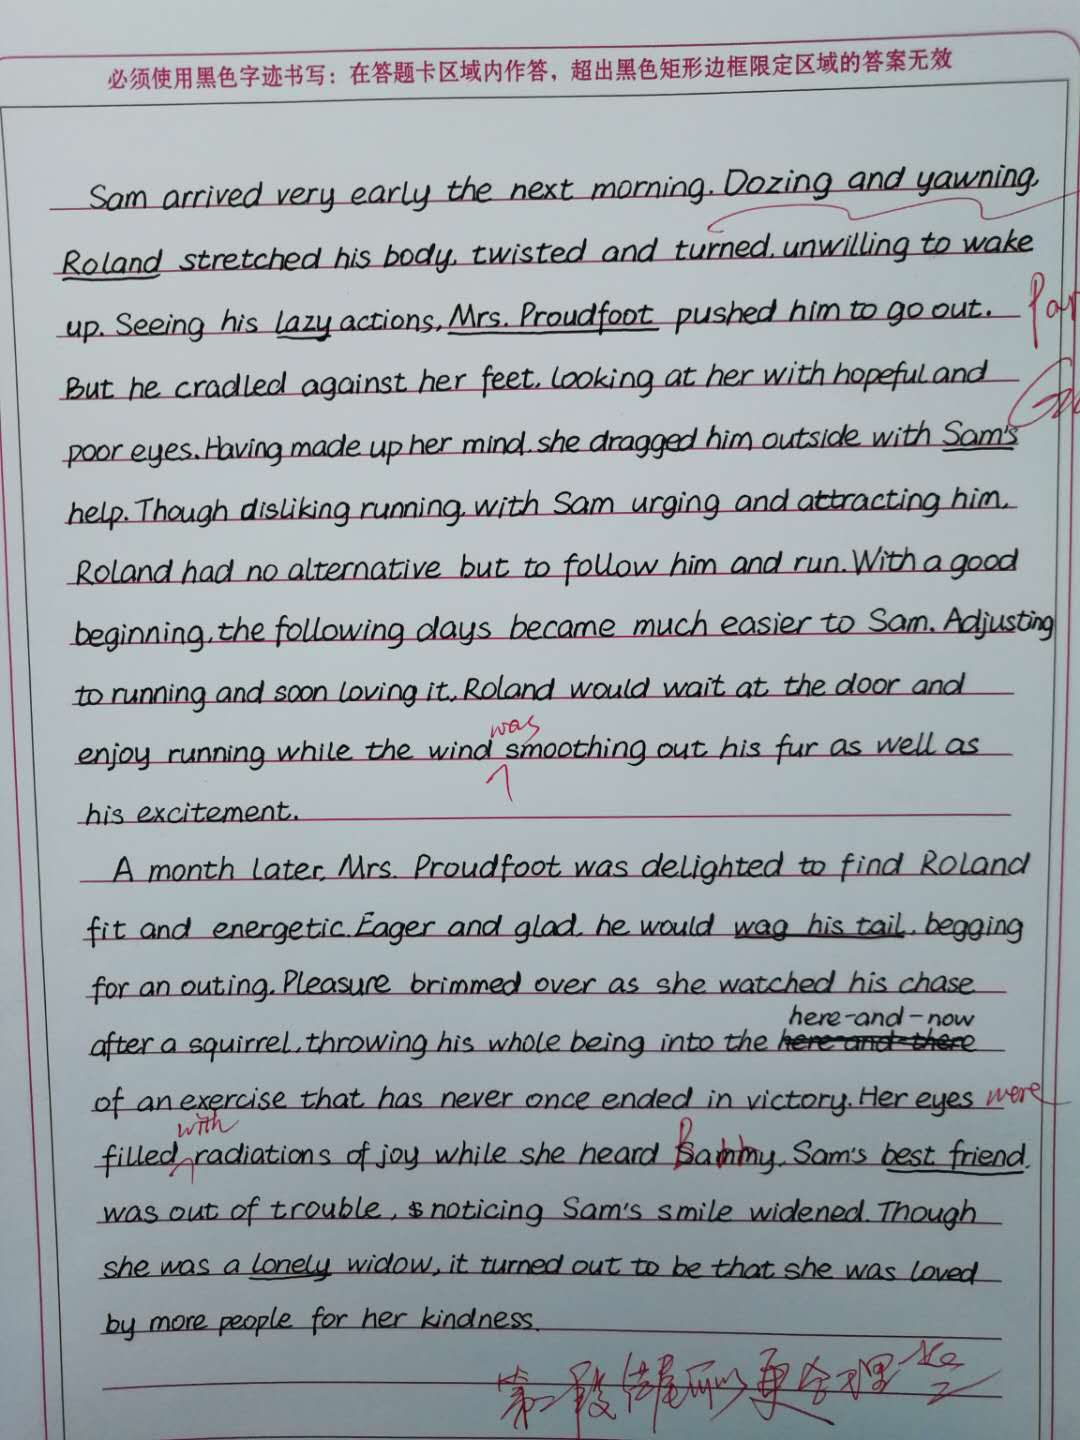 必须使用黑色字迹书写：在答题卡区域内作答，超出黑色矩形边框限定区域的答案无效
Sam arrived very early the next morning. Dozing and yawning,
Roland stretched his body, twisted and turned, unwilling to wake
up. Seeing his lazy actions, Mrs. Proudfoot pushed him to go out.
But he cradled against her feet, looking at her with hopeful and
poor eyes. Having made up her mind, she dragged him outside with Sam's
help. Though disliking running, with Sam urging and attracting him,
Roland had no alternative but to follow him and run. With a good
beginning, the following days became much easier to Sam. Adjusting
to running and soon loving it, Roland would wait at the door and
was
enjoy running while the wind smoothing out his fur as well as
his excitement.
A month later, Mrs. Proudfoot was delighted to find Roland
fit and energetic. Eager and glad, he would wag his tail, begging
for an outing. Pleasure brimmed over as she watched his chase
here-and-now
after a squirrel, throwing his whole being into the here-and-there
of an exercise that has never once ended in victory. Her eyes were
with
filled radiations of joy while she heard Sammy, Sam's best friend,
was out of trouble, noticing Sam's smile widened. Though
she was a lonely widow, it turned out to be that she was loved
by more people for her kindness.
第二段结尾可以更合理些